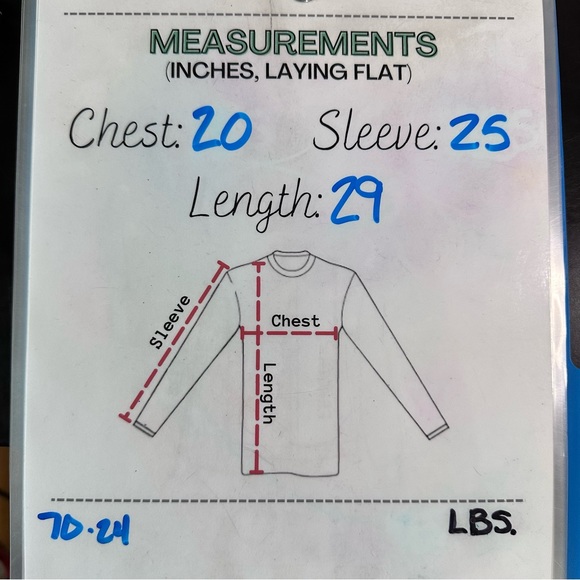 MEASUREMENTS
(INCHES, LAYING FLAT)
Chest: 20 Sleeve: 25
Length: 29
Sleeve
Chest
Length
70.24 LBS.